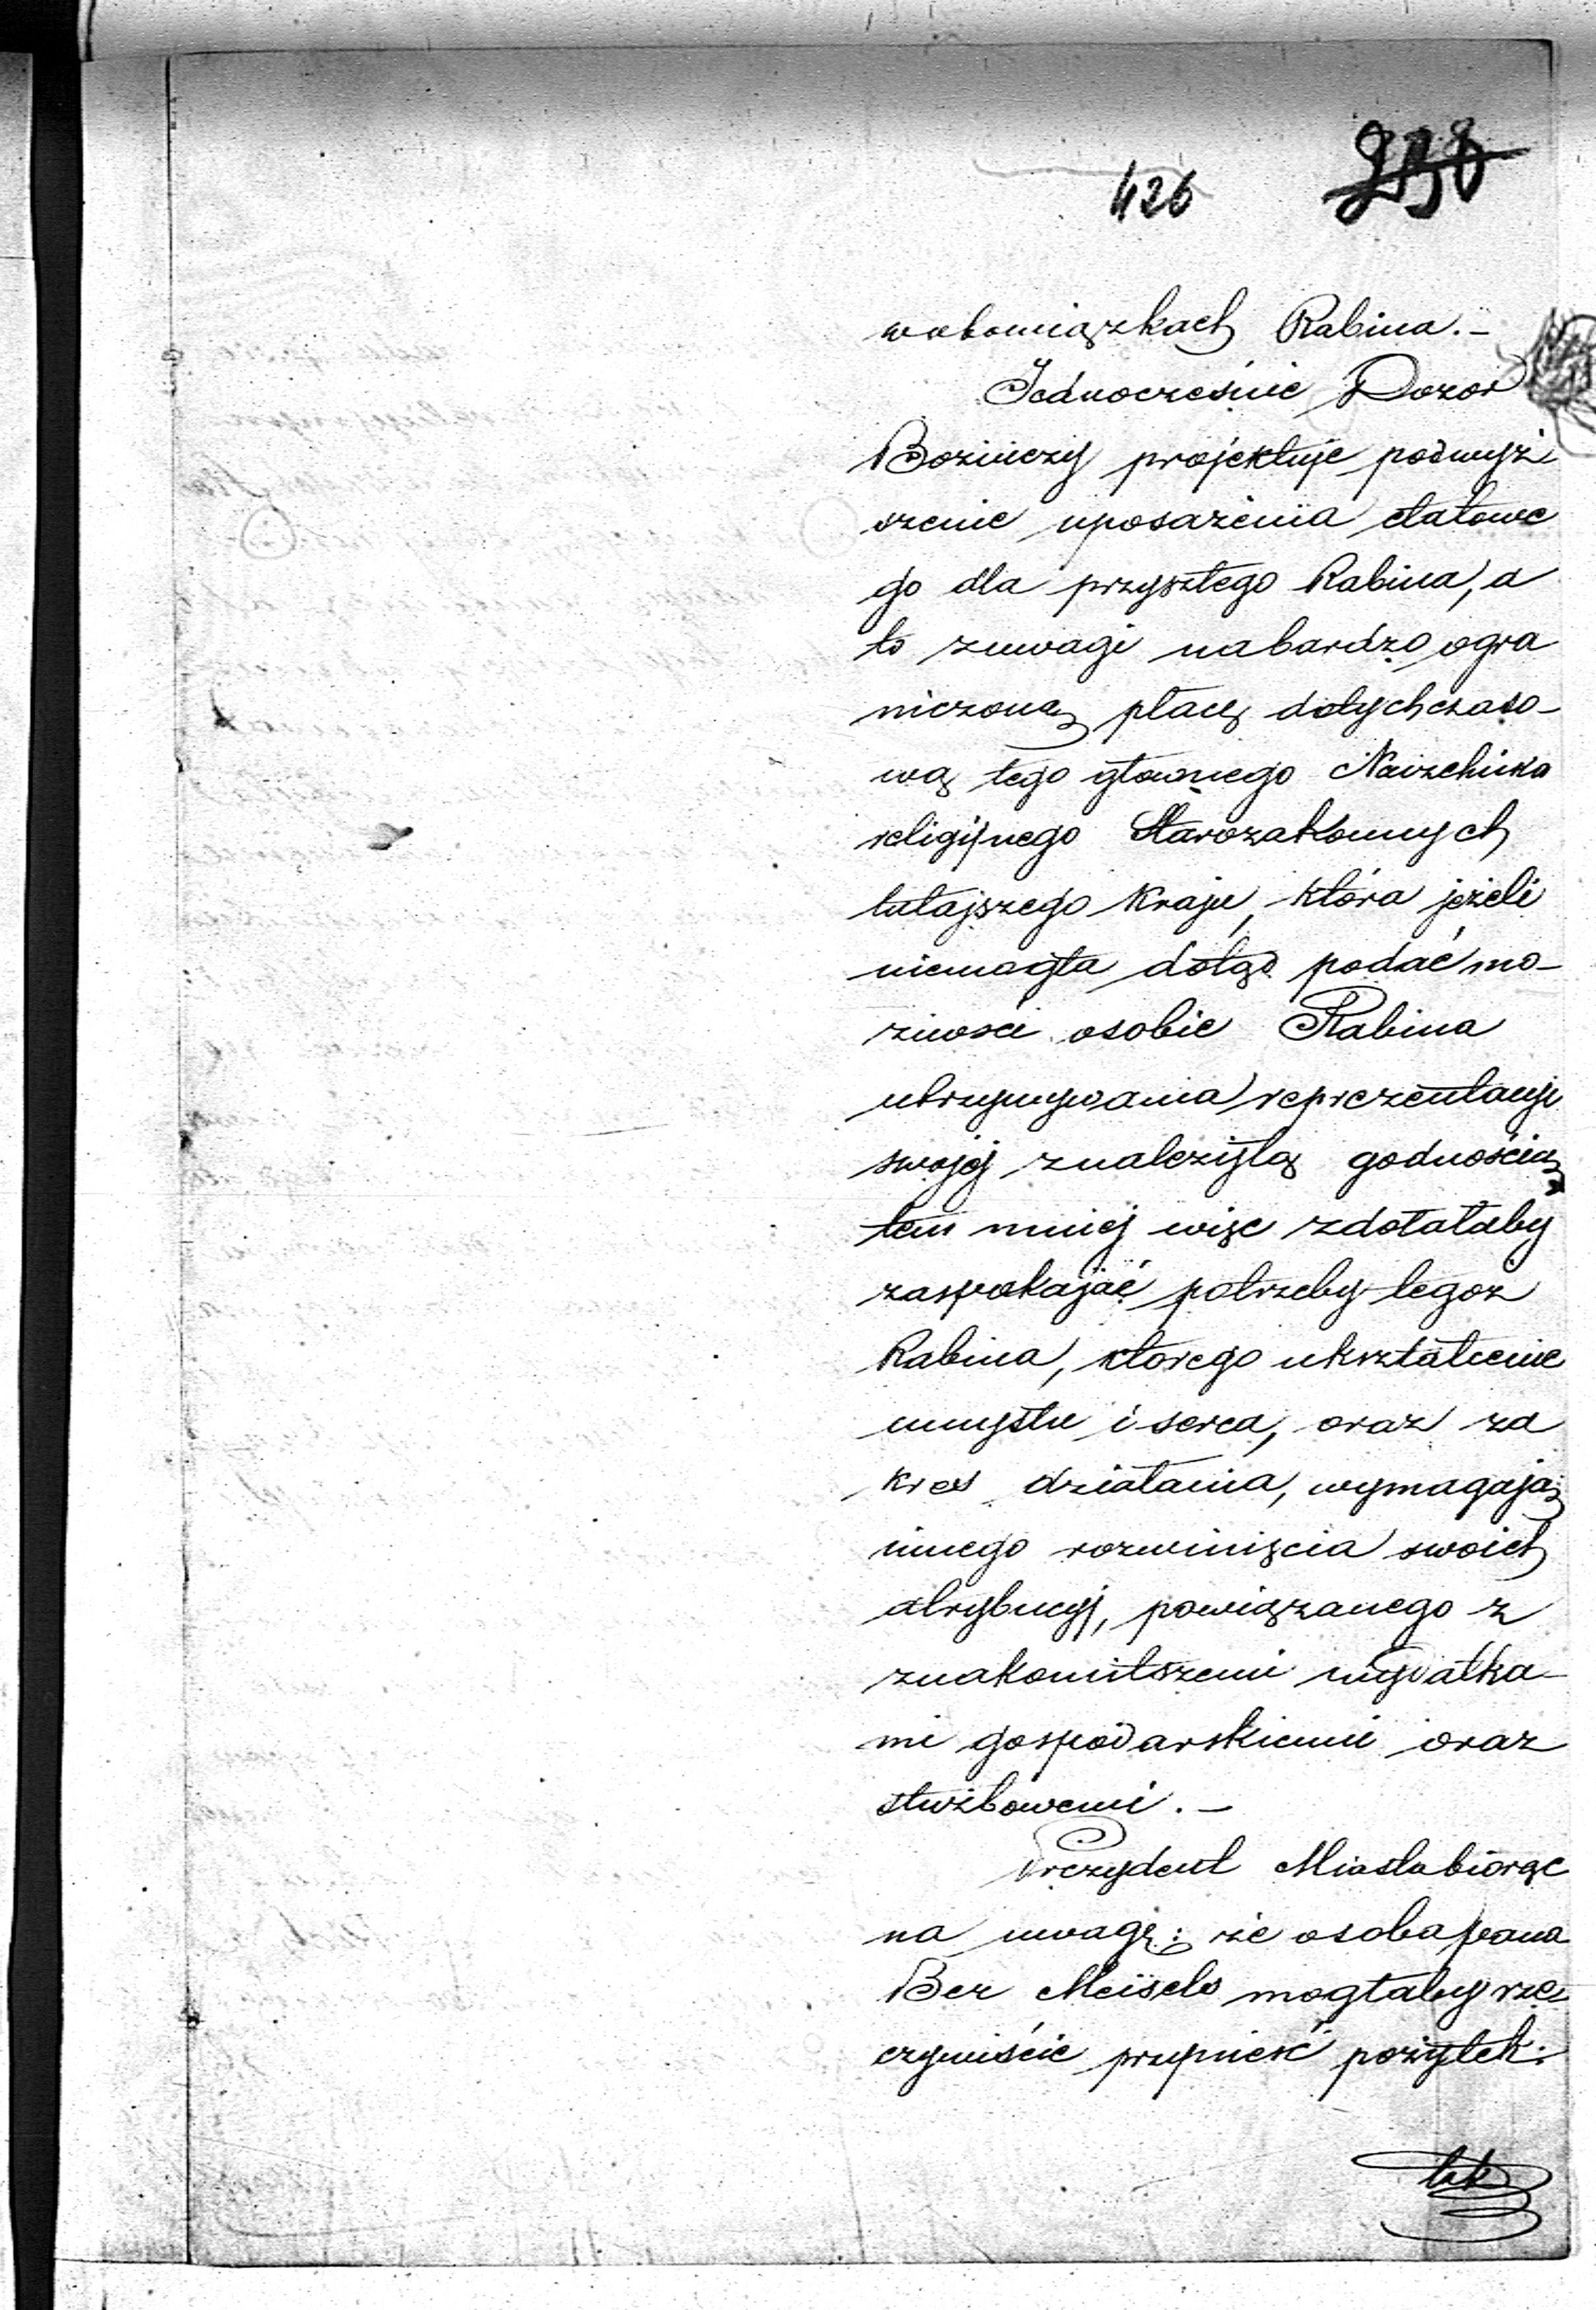 426 238
w obowiązkach Rabina.–
Jednocześnie Dozor
Bożniczy projektuje podwyż
szenie uposażenia etatowe
go dla przyszłego Rabina, a
to z uwagi na bardzo ogra
niczoną płacę dotychczaso–
wą tego głownego Naczelnika
religijnego Starozakonnych
tutajszego Kraju, która jeżeli
niemogła dotąd podać mo–
żności osobie Rabina
utrzymywania reprezentacyi
swojej z należytą godnością
tem mniej więc zdołałaby
zaspokajać potrzeby tegoż
Rabina, ktorego ukształcenie
umysłu i serca, oraz za
kres działania, wymagają
innego rozwinięcia swoich
atrybucyj, powiązanego z
znakomitszemi wydatka–
mi gospodarskiemi oraz
służbowemi.–
Prezydent Miasta biorąc
na uwagę: że osoba pana
Ber Meisels mogłaby rze
czywiście przynieść pożytek:
tak